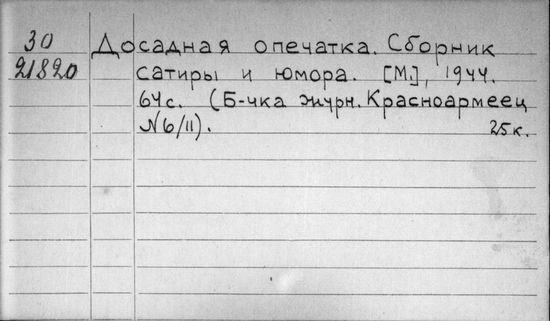 30 Досадная опечатка. Сборник
21820 сатиры и юмора. [М.], 1944.
64с. (Б-чка журн. Красноармеец
№6/11). 25к.